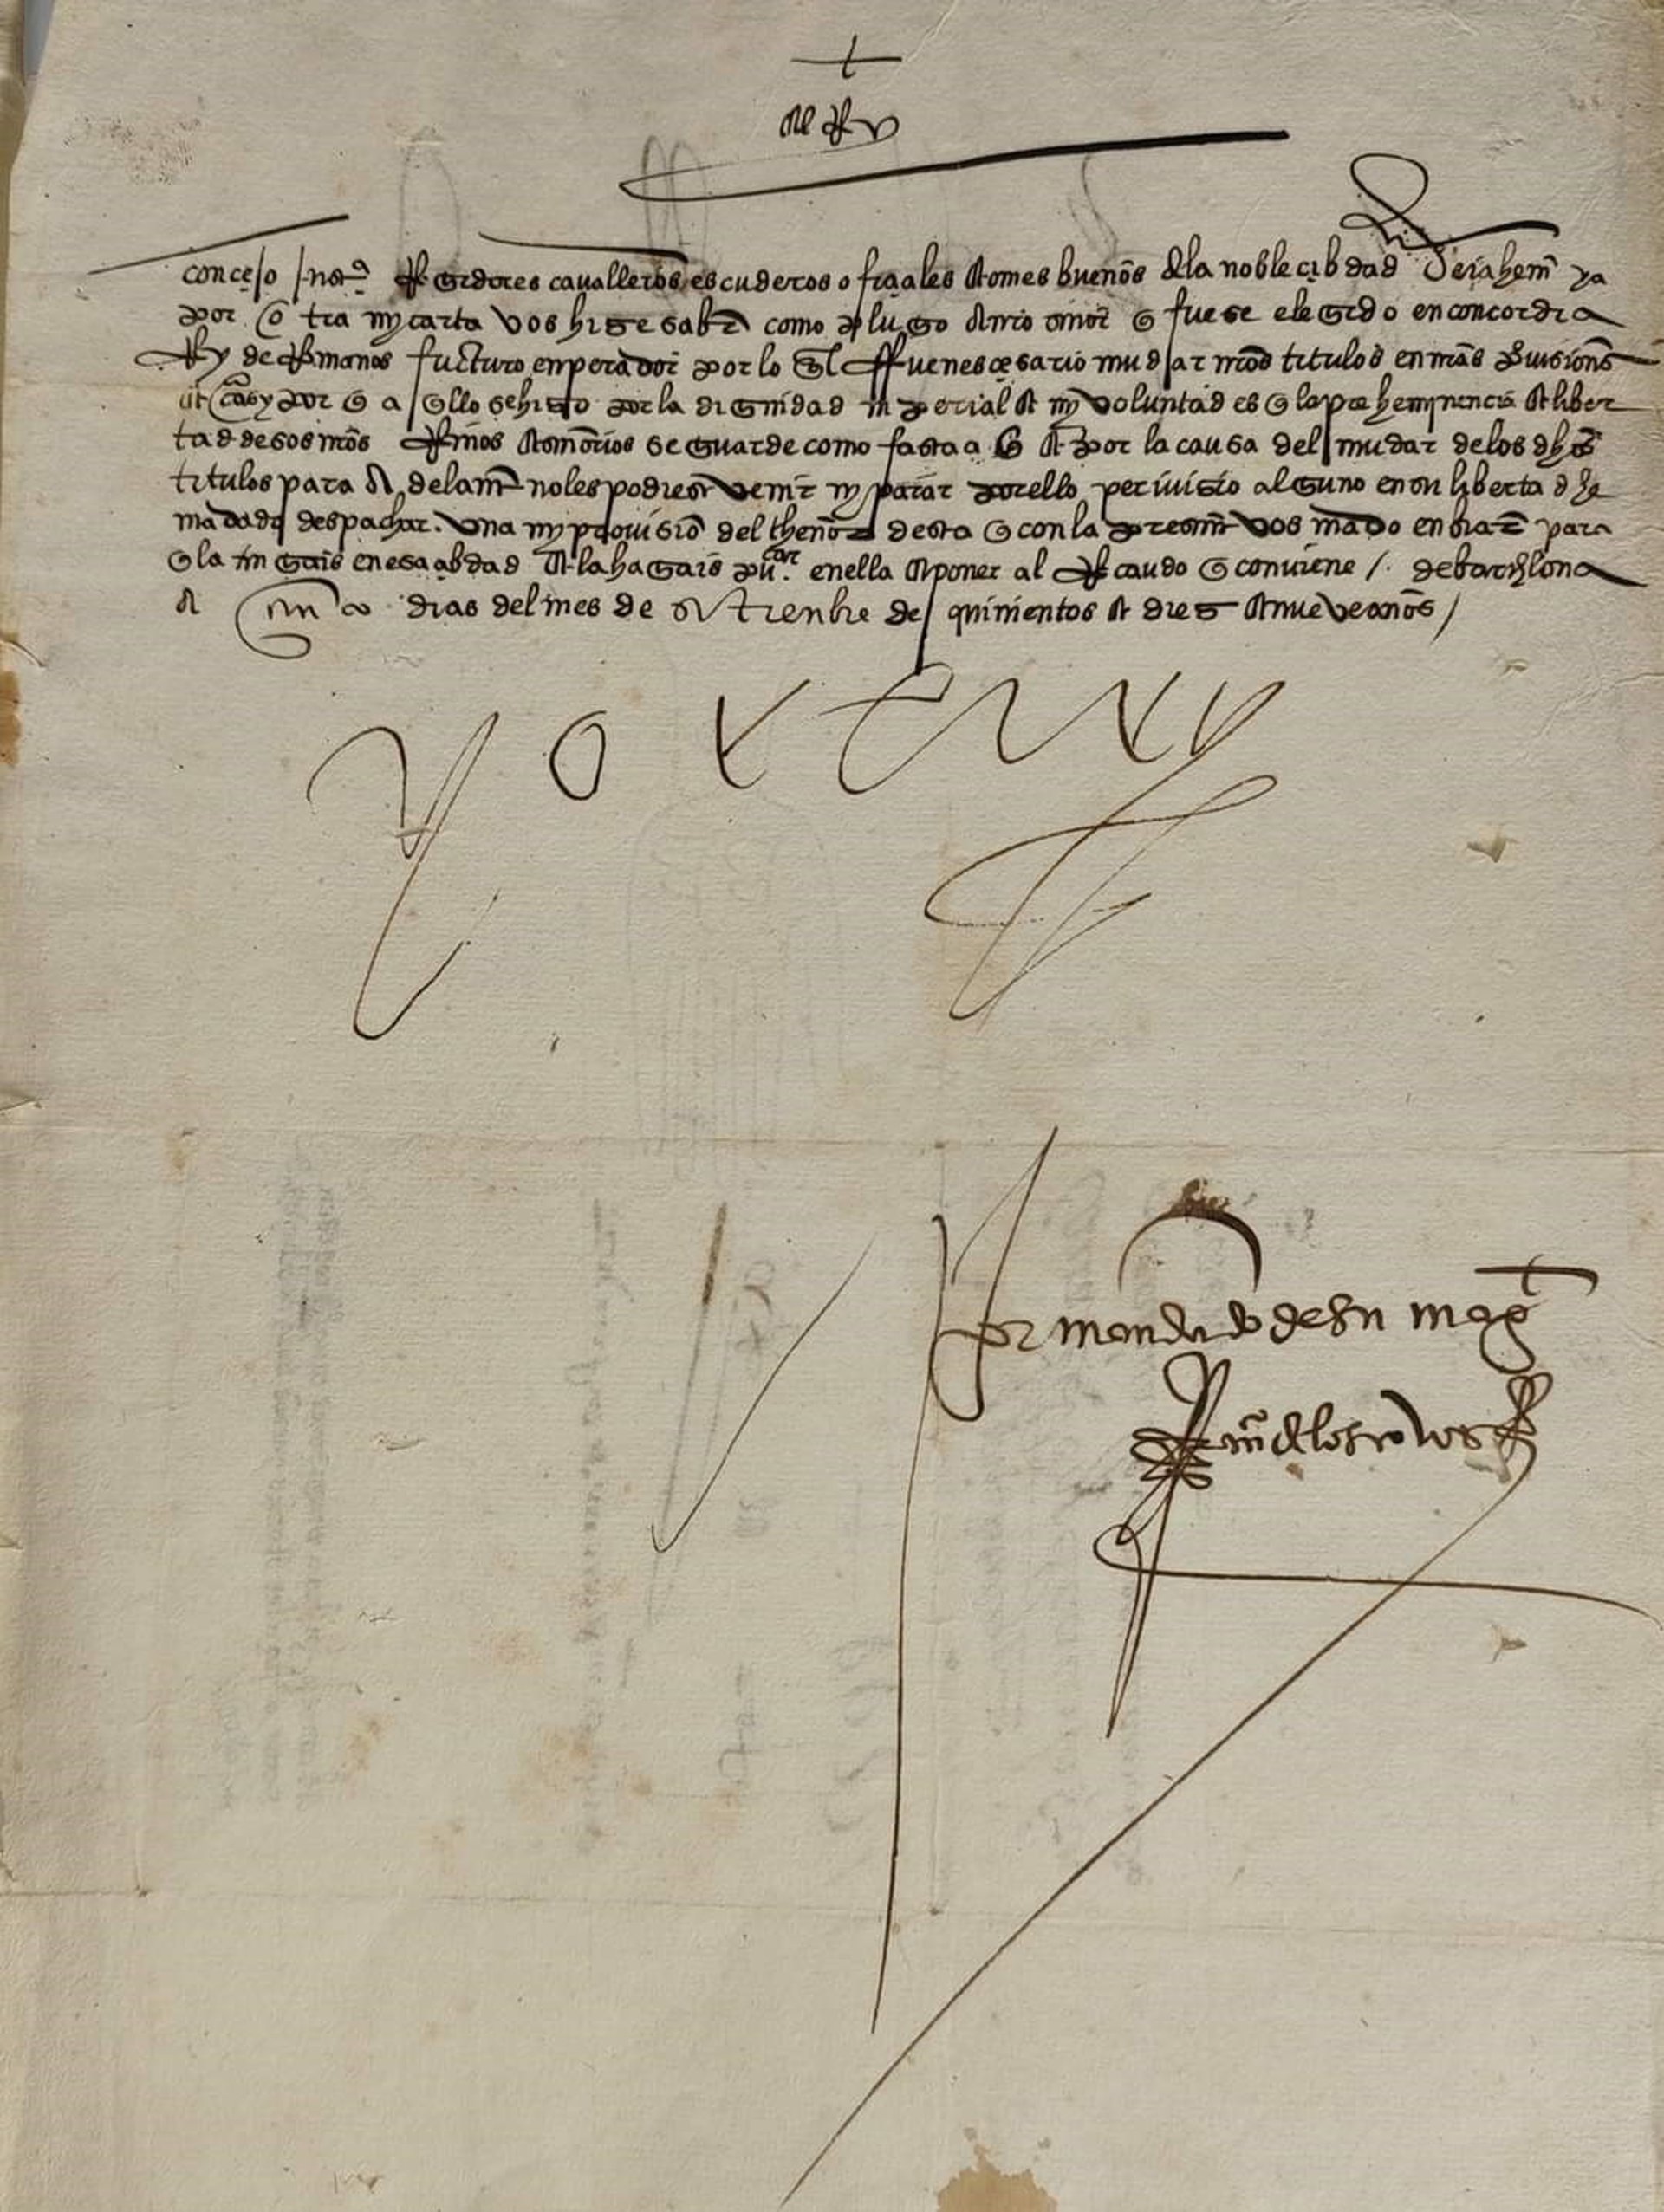 el Rey
conçejo Justª Regidores cavalleros escuderos ofiçiales & omes buenos de la noble çibdad ya
por otra my carta vos hize saber como plugo a nro señor q fuese elegido en concordia
Rey de Romanos futturo enperador por lo ql fue nesçesario mudar nros titulos en nras provisiones
y por q aqllo se hizo por la dignidad inperial & my voluntad es q la prehemynençia & liber
tad desos nros Reinos & señorios se guarde como fasta aq & por la causa del mudar de los dhos
titulos para adelante no les podiese venir ny parar por ello perjuizio alguno en su libertad he
mādado despachar una my provisiō del thenor desta q con la presente vos mādo enbiar para
q la tengais en esa çibdad & la hagais puᶜᵃʳ en ella & poner al Recaudo q conviene /. de barçelona
a dias del mes de setienbre de quinientos & diez & nueve años /
yo el Rey
por mandado de su magt
de los covos